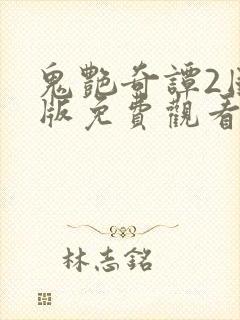 鬼艷奇譚2
版免費觀看
林志銘